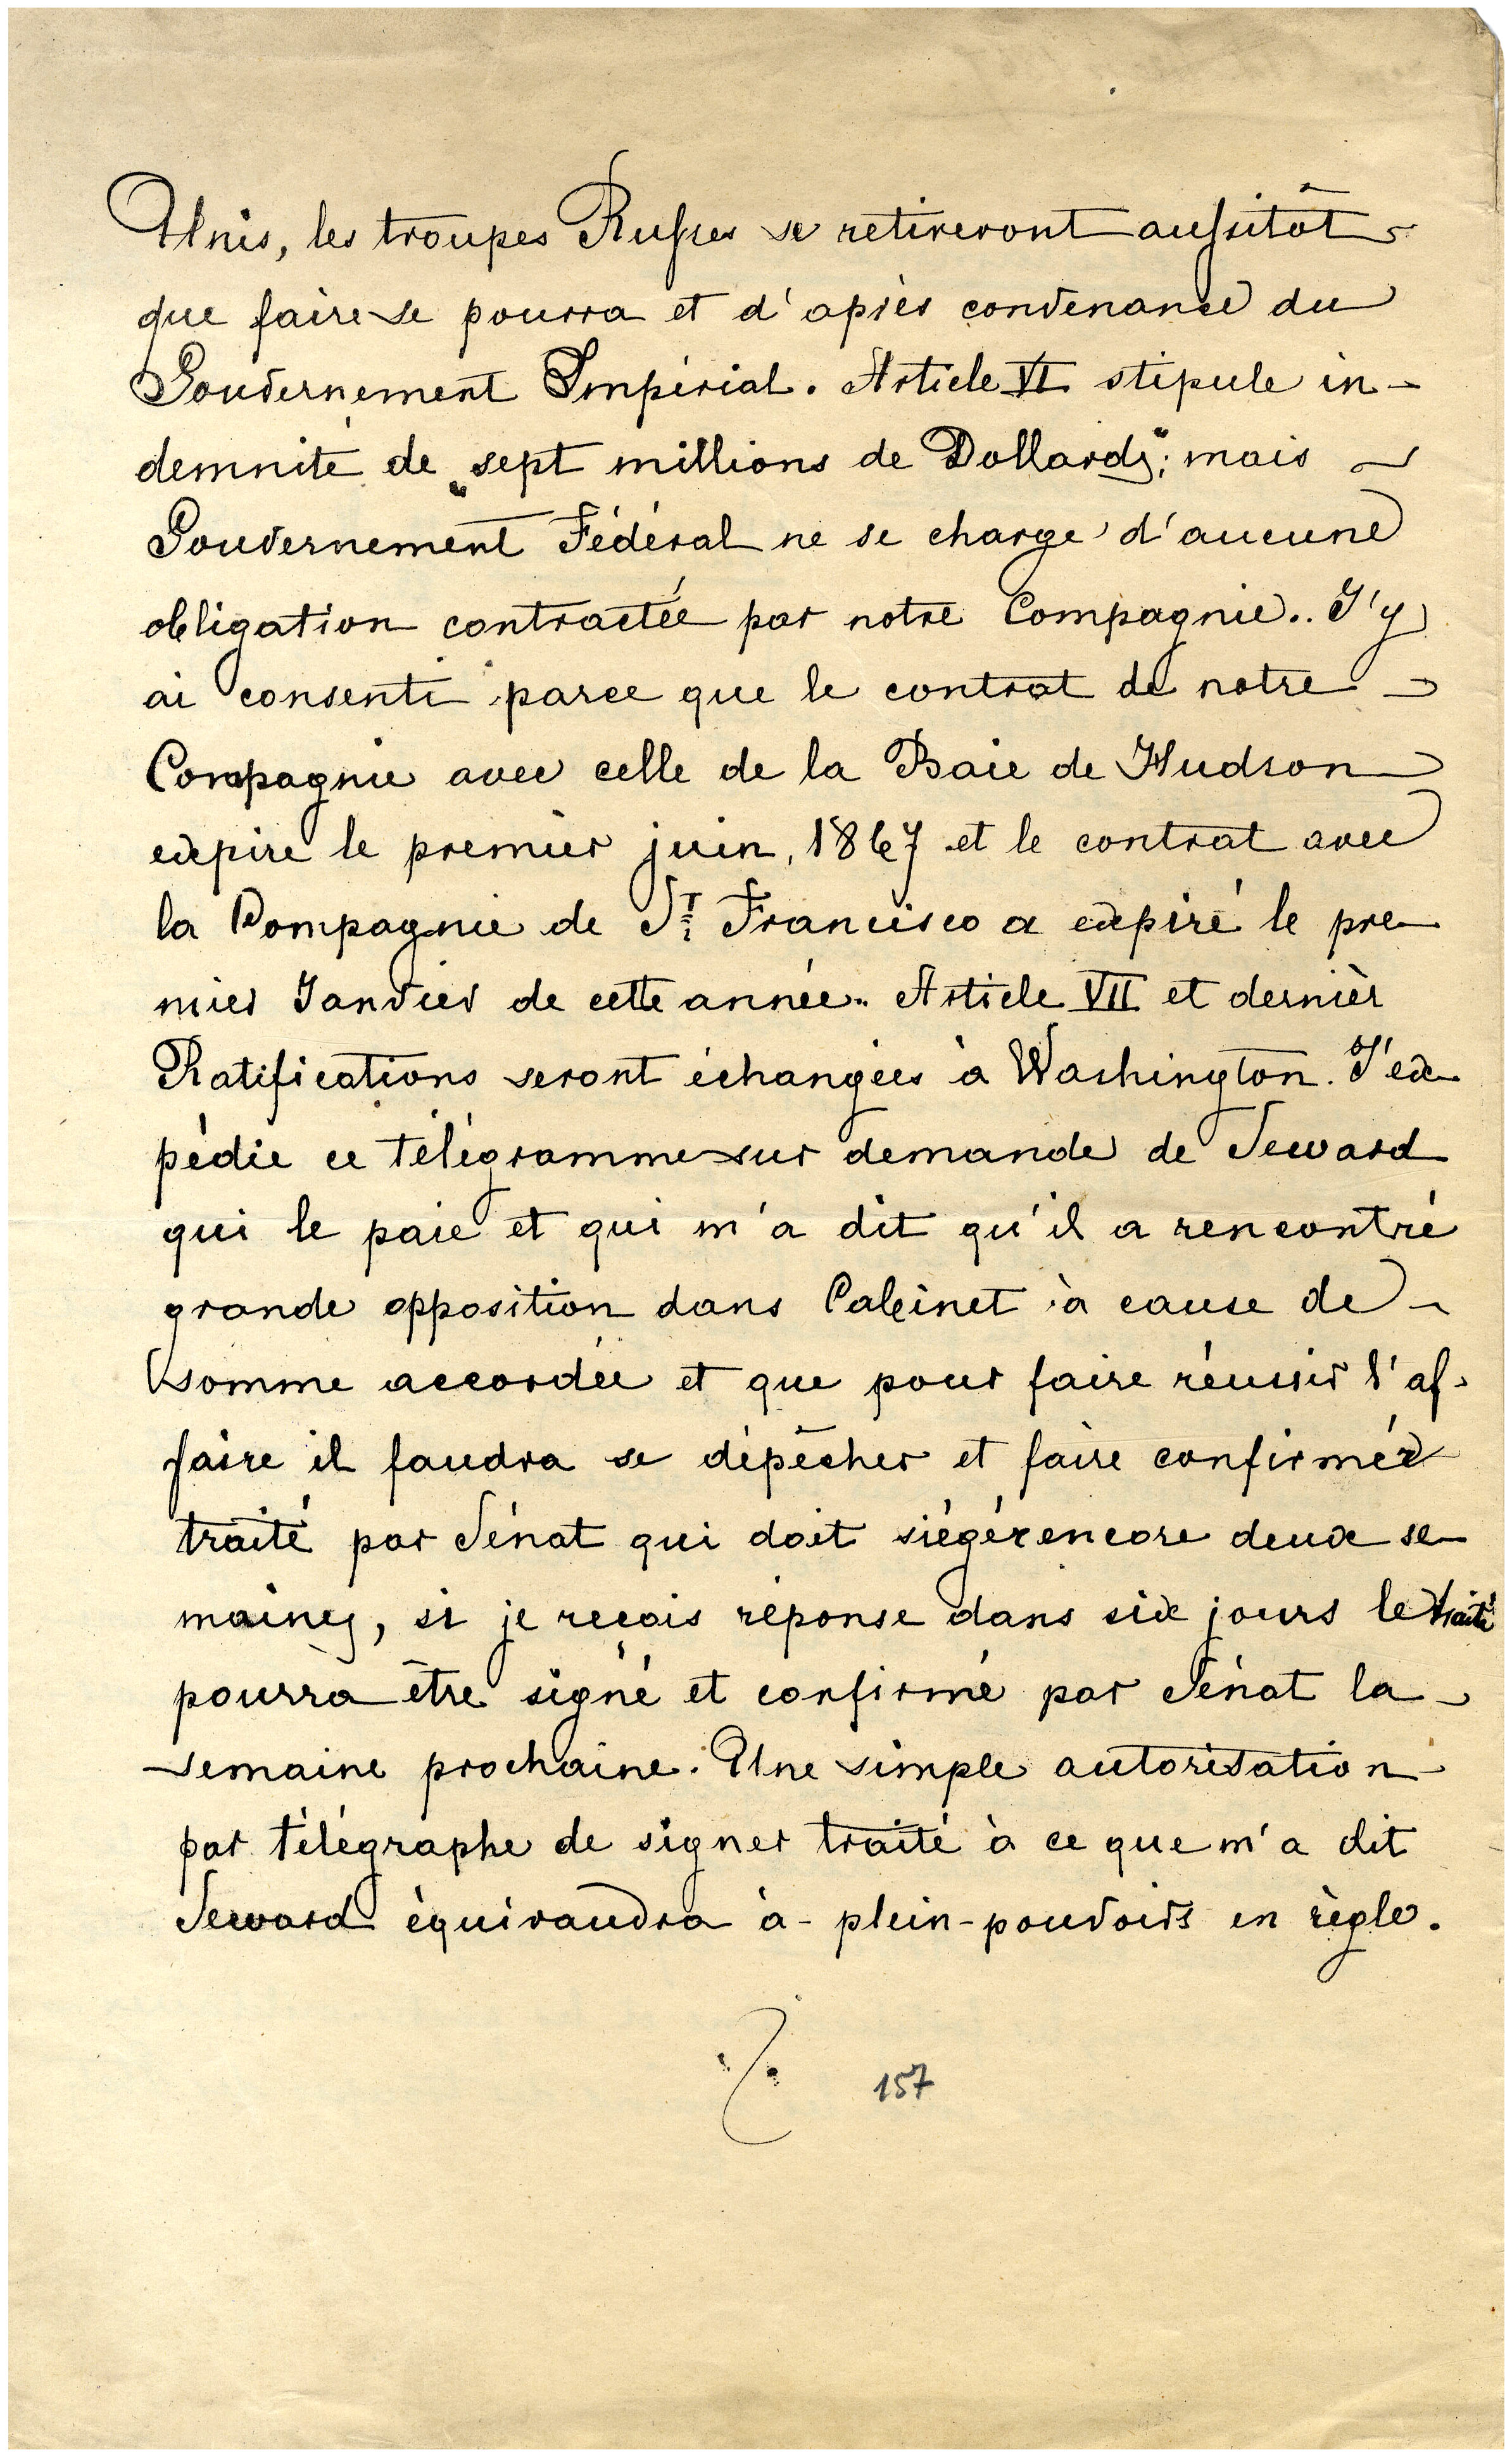 Unis, les troupes Russes se retireront aussitôt
que faire se pourra et d'après convenance du
Gouvernement Impérial. Article VI stipule in-
demnité de „sept millions de Dollards"; mais
Gouvernement Fédéral ne se charge d'aucune
obligation contractée par notre Compagnie.. J'y
ai consenti parce que le contrat de notre
Compagnie avec celle de la Baie de Hudson
expire le premier juin, 1867 et le contrat avec
la Compagnie de St Francisco a expiré le pre-
mier Janvier de cette année. Article VII et dernièr
Ratifications seront échangées à Washington. J'ex-
pédie ce télégramme sur demande de Seward
qui le paie et qui m'a dit qu'il a rencontré
grande opposition dans Cabinet à cause de
somme accordée et que pour faire réussir l'af-
faire il faudra se dépêcher et faire confirmér
traité par Sénat qui doit siégér encore deux se-
maines, si je recois réponse dans six jours le traité
pourra être signé et confirmé par Sénat la
semaine prochaine. Une simple autorisation
par télégraphe de signer traité à ce que m'a dit
Seward équivaudra à-plein-pouvoirs en règle.
157